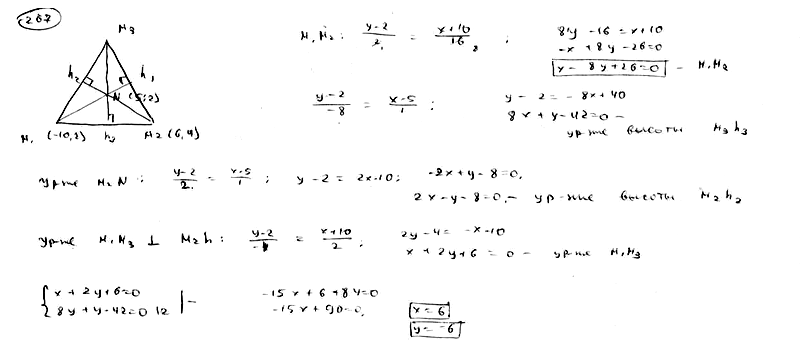 267
M3
h2 h1
N (5;2)
M1 (-10,2) h3 M2 (6,4)
M1M2: y-2/2 = x+10/16 8 ; 8y-16=x+10
-x+8y-26=0
x-8y+26=0 - M1M2
y-2/-8 = x-5/1 ; y-2=-8x+40
8x+y-42=0 -
ур-ние высоты M3h3
Ур-ние M2N: y-2/2 = x-5/1 ; y-2=2x-10; -2x+y-8=0,
2x-y-8=0,- ур-ние высоты M2h2
Ур-ние M1M3 ⊥ M2h: y-2/-1 = x+10/2 ; 2y-4=-x-10
x+2y+6=0- ур-ние M1M3
{x+2y+6=0
8y+y-42=0 |2 |- -15x+6+84=0
-15x+90=0, x=6
y=-6